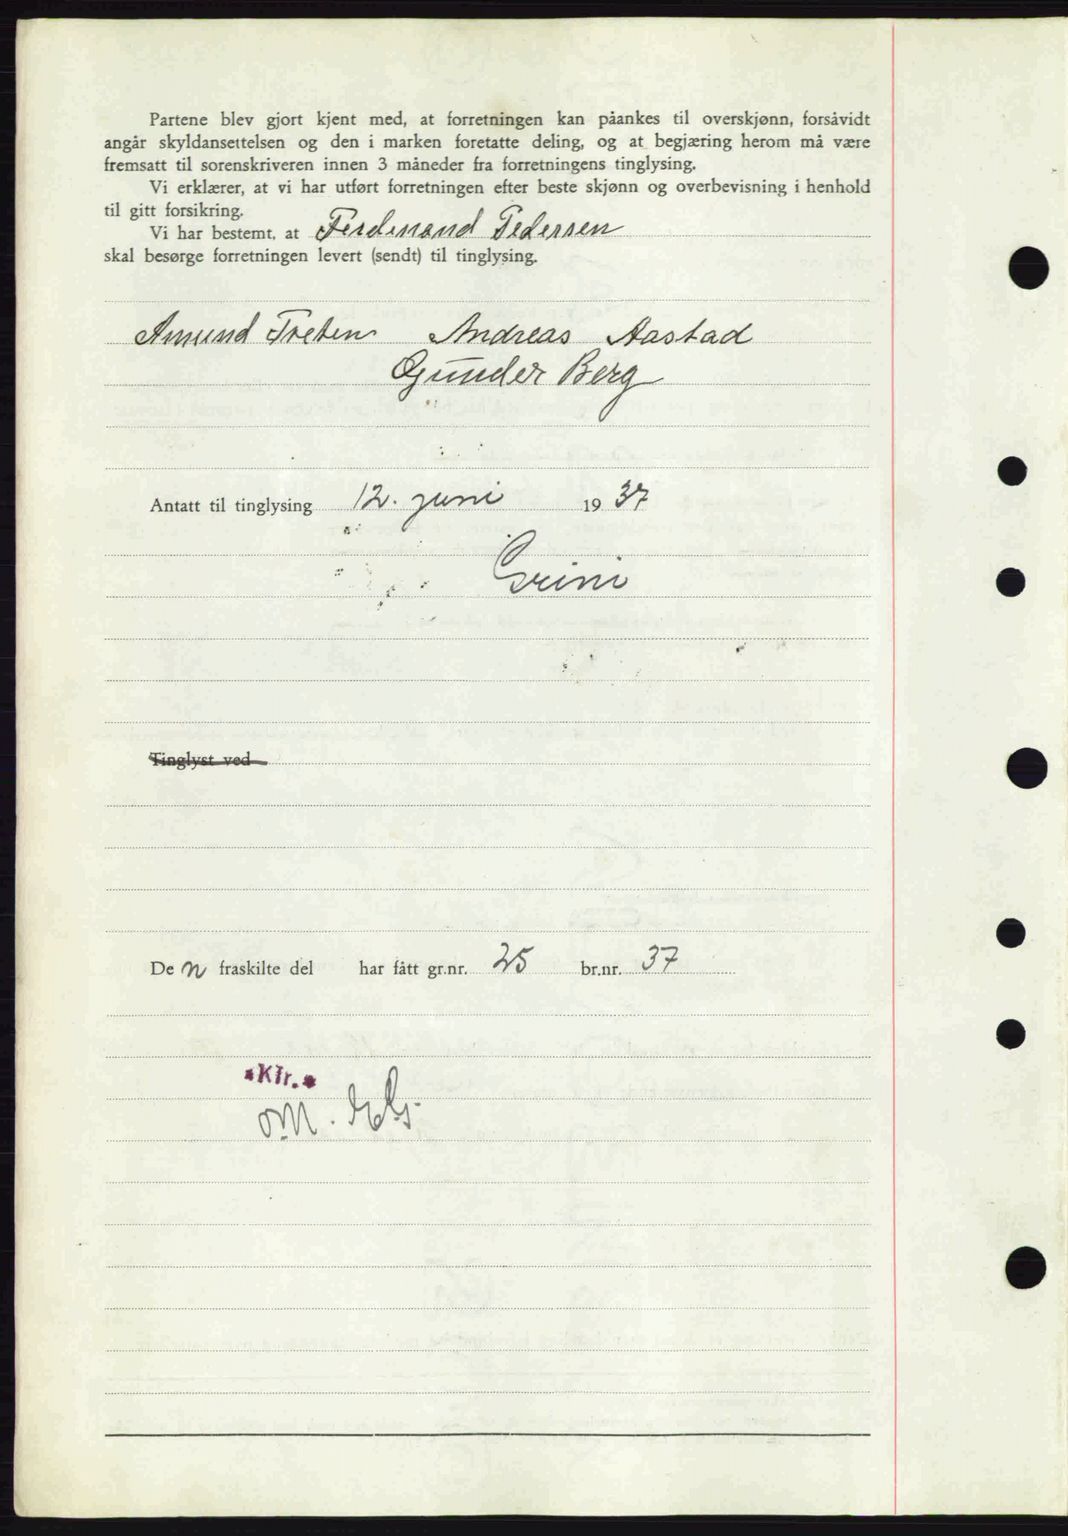 Partene blev gjort kjent med, at forretningen kan påankes til overskjønn, forsåvidt
angår skyldansettelsen og den i marken foretatte deling, og at begjæring herom må være
fremsatt til sorenskriveren innen 3 måneder fra forretningens tinglysing.
Vi erklærer, at vi har utført forretningen efter beste skjønn og overbevisning i henhold
til gitt forsikring.
Vi har bestemt, at Ferdinand Pedersen
skal besørge forretningen levert (sendt) til tinglysing.
Amund Treten Andreas Aastad
Gunder Berg
Antatt til tinglysing 12. juni 1937
Grini
Tinglyst ved
De n fraskilte del har fått gr.nr. 25 br.nr. 37
*Kfr.*